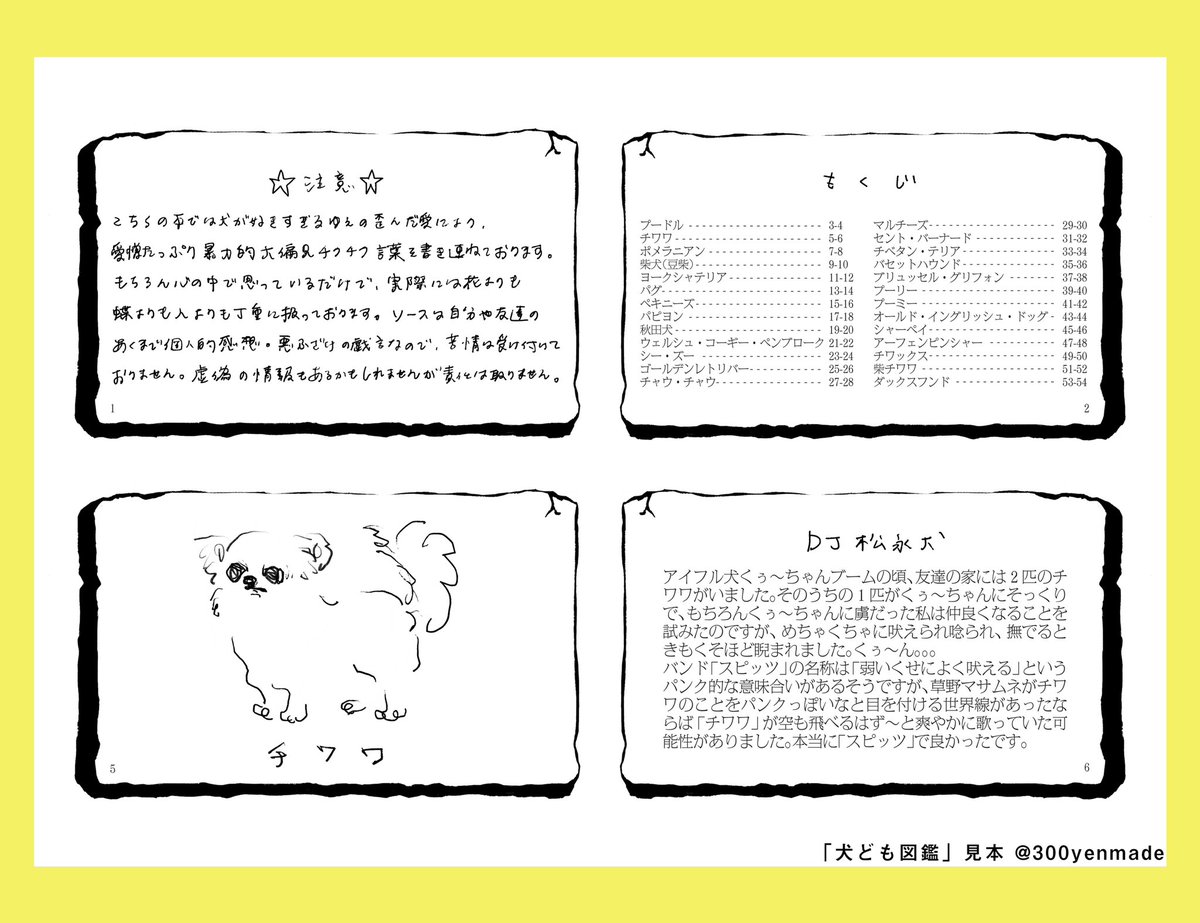 ☆注意☆
こちらの本では犬が好きすぎるゆえの歪んだ愛により、
愛憎たっぷり暴力的大偏見チクチク言葉を書き連ねております。
もちろん心の中で思っているだけで、実際には花よりも
蝶よりも人よりも丁重に扱っております。ソースは自分や友達の
あくまで個人的感想。悪ふざけの戯言なので、苦情は受け付けて
おりません。虚偽の情報もあるかもしれませんが責任は取りません。
1
もくじ
プードル 3-4
チワワ 5-6
ポメラニアン 7-8
柴犬(豆柴) 9-10
ヨークシャテリア 11-12
パグ 13-14
ペキニーズ 15-16
パピヨン 17-18
秋田犬 19-20
ウェルシュ・コーギー・ペンブローク 21-22
シー・ズー 23-24
ゴールデンレトリバー 25-26
チャウ・チャウ 27-28
マルチーズ 29-30
セント・バーナード 31-32
チベタン・テリア 33-34
バセットハウンド 35-36
ブリュッセル・グリフォン 37-38
プーリー 39-40
プーミー 41-42
オールド・イングリッシュ・ドッグ 43-44
シャーペイ 45-46
アーフェンピンシャー 47-48
チワックス 49-50
柴チワワ 51-52
ダックスフンド 53-54
2
チワワ
5
DJ松永犬
アイフル犬くぅ〜ちゃんブームの頃、友達の家には2匹のチ
ワワがいました。そのうちの1匹がくぅ〜ちゃんにそっくり
で、もちろんくぅ〜ちゃんに虜だった私は仲良くなることを
試みたのですが、めちゃくちゃに吠えられ唸られ、撫でると
きもくそほど睨まれました。くぅ〜ん。。。
バンド「スピッツ」の名称は「弱いくせによく吠える」という
パンク的な意味合いがあるそうですが、草野マサムネがチワ
ワのことをパンクっぽいなと目を付ける世界線があったな
らば「チワワ」が空も飛べるはず〜と爽やかに歌っていた可
能性がありました。本当に「スピッツ」で良かったです。
6
「犬ども図鑑」見本 @300yenmade